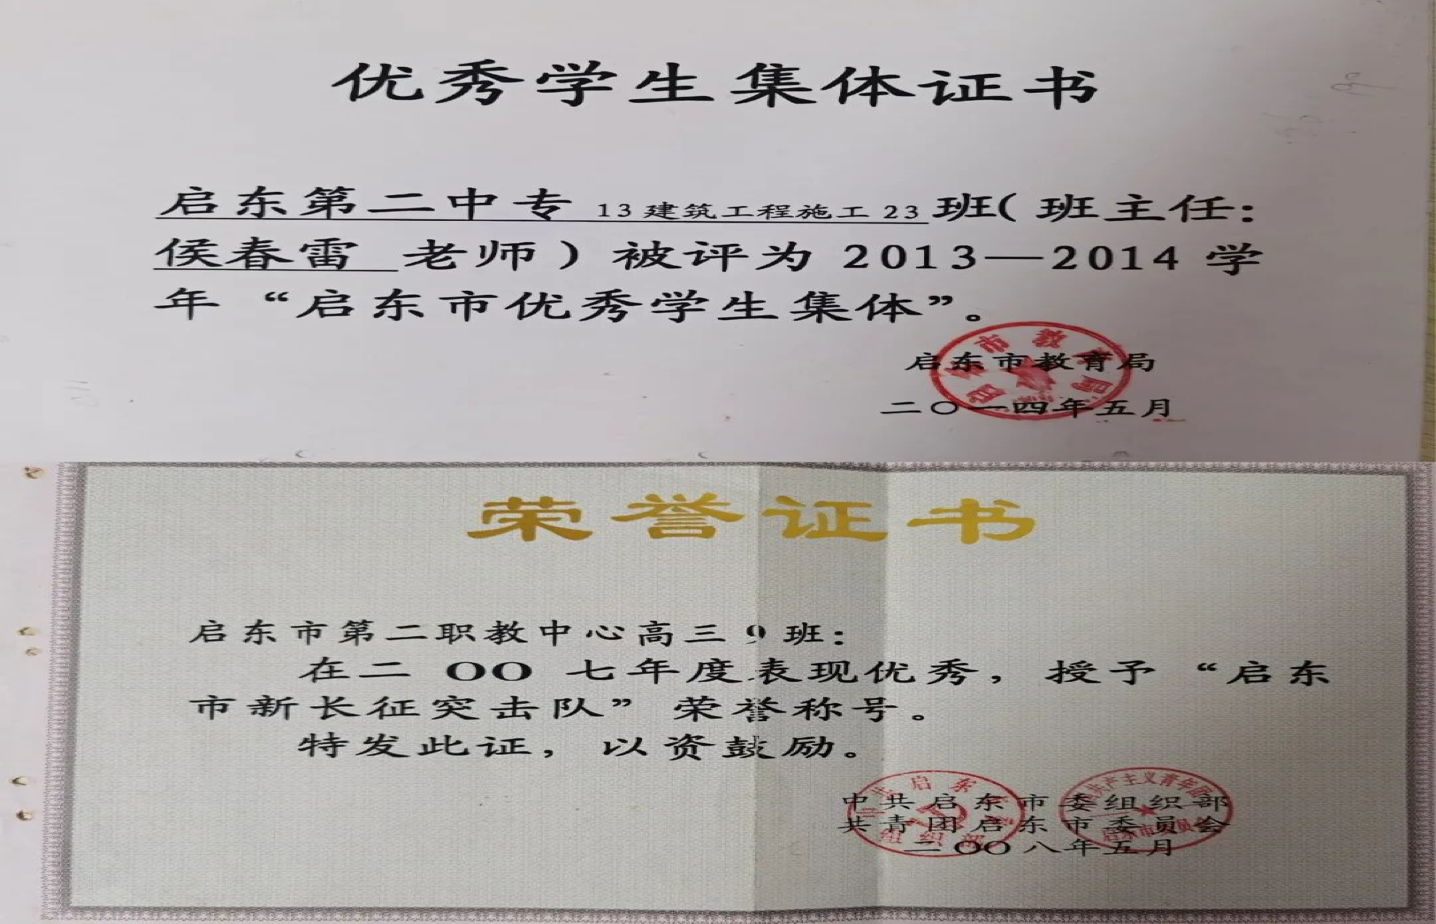 优秀学生集体证书
启东第二中专 13建筑工程施工23 班（班主任：
侯春雷 老师）被评为2013—2014学
年“启东市优秀学生集体”。
启东市教育局
二〇一四年五月
荣誉证书
启东市第二职教中心高三9班：
在二OO七年度表现优秀，授予“启东
市新长征突击队”荣誉称号。
特发此证，以资鼓励。
中共启东市委组织部
共青团启东市委员会
二OO八年五月